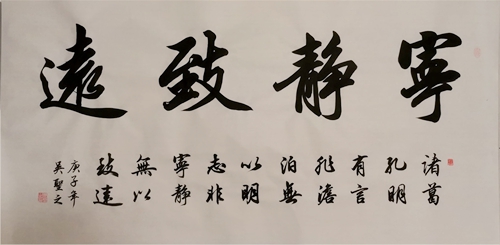 寧静致遠
諸葛
孔明
有言
非澹
泊無
以明
志非
寧静
無以
致遠
庚子年
吴聖之